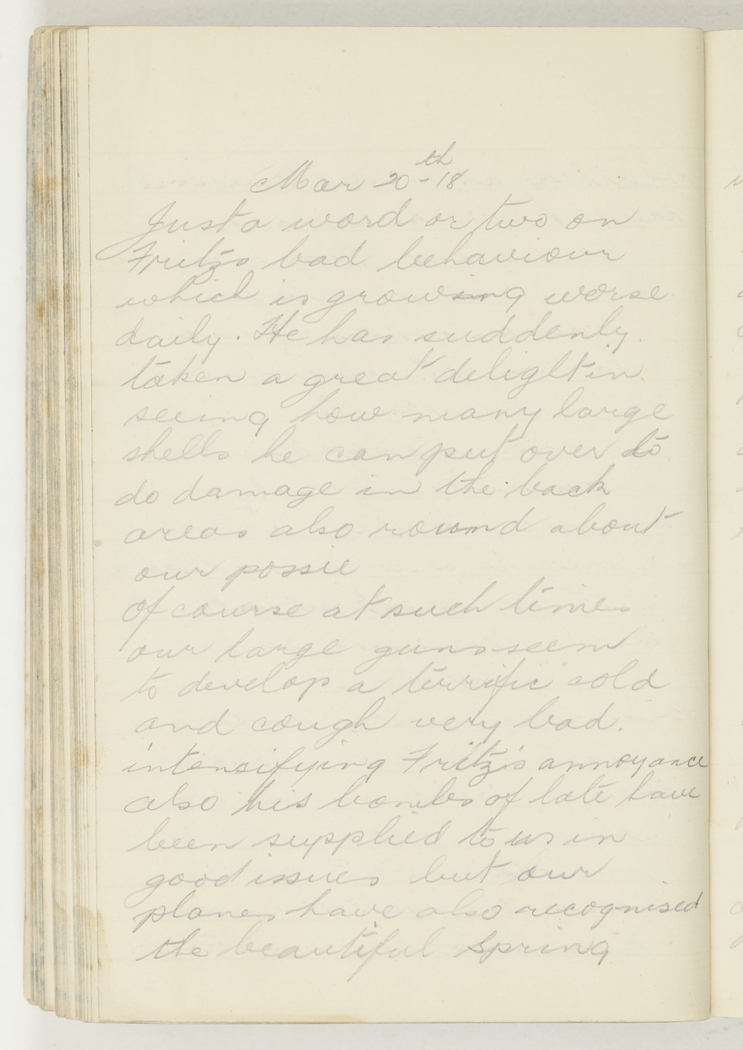 Mar 20th-18
Just a word or two on
Fritz's bad behaviour
which is growing worse
daily. He has suddenly
taken a great delight in
seeing how many large
shells he can put over to
do damage in the back
areas also round about
our possie
of course at such times
our large guns seem
to develop a terrific cold
and cough very bad.
intensifying Fritz's annoyance
also his bombs of late have
been supplied to us in
good issues but our
planes have also recognised
the beautiful Spring